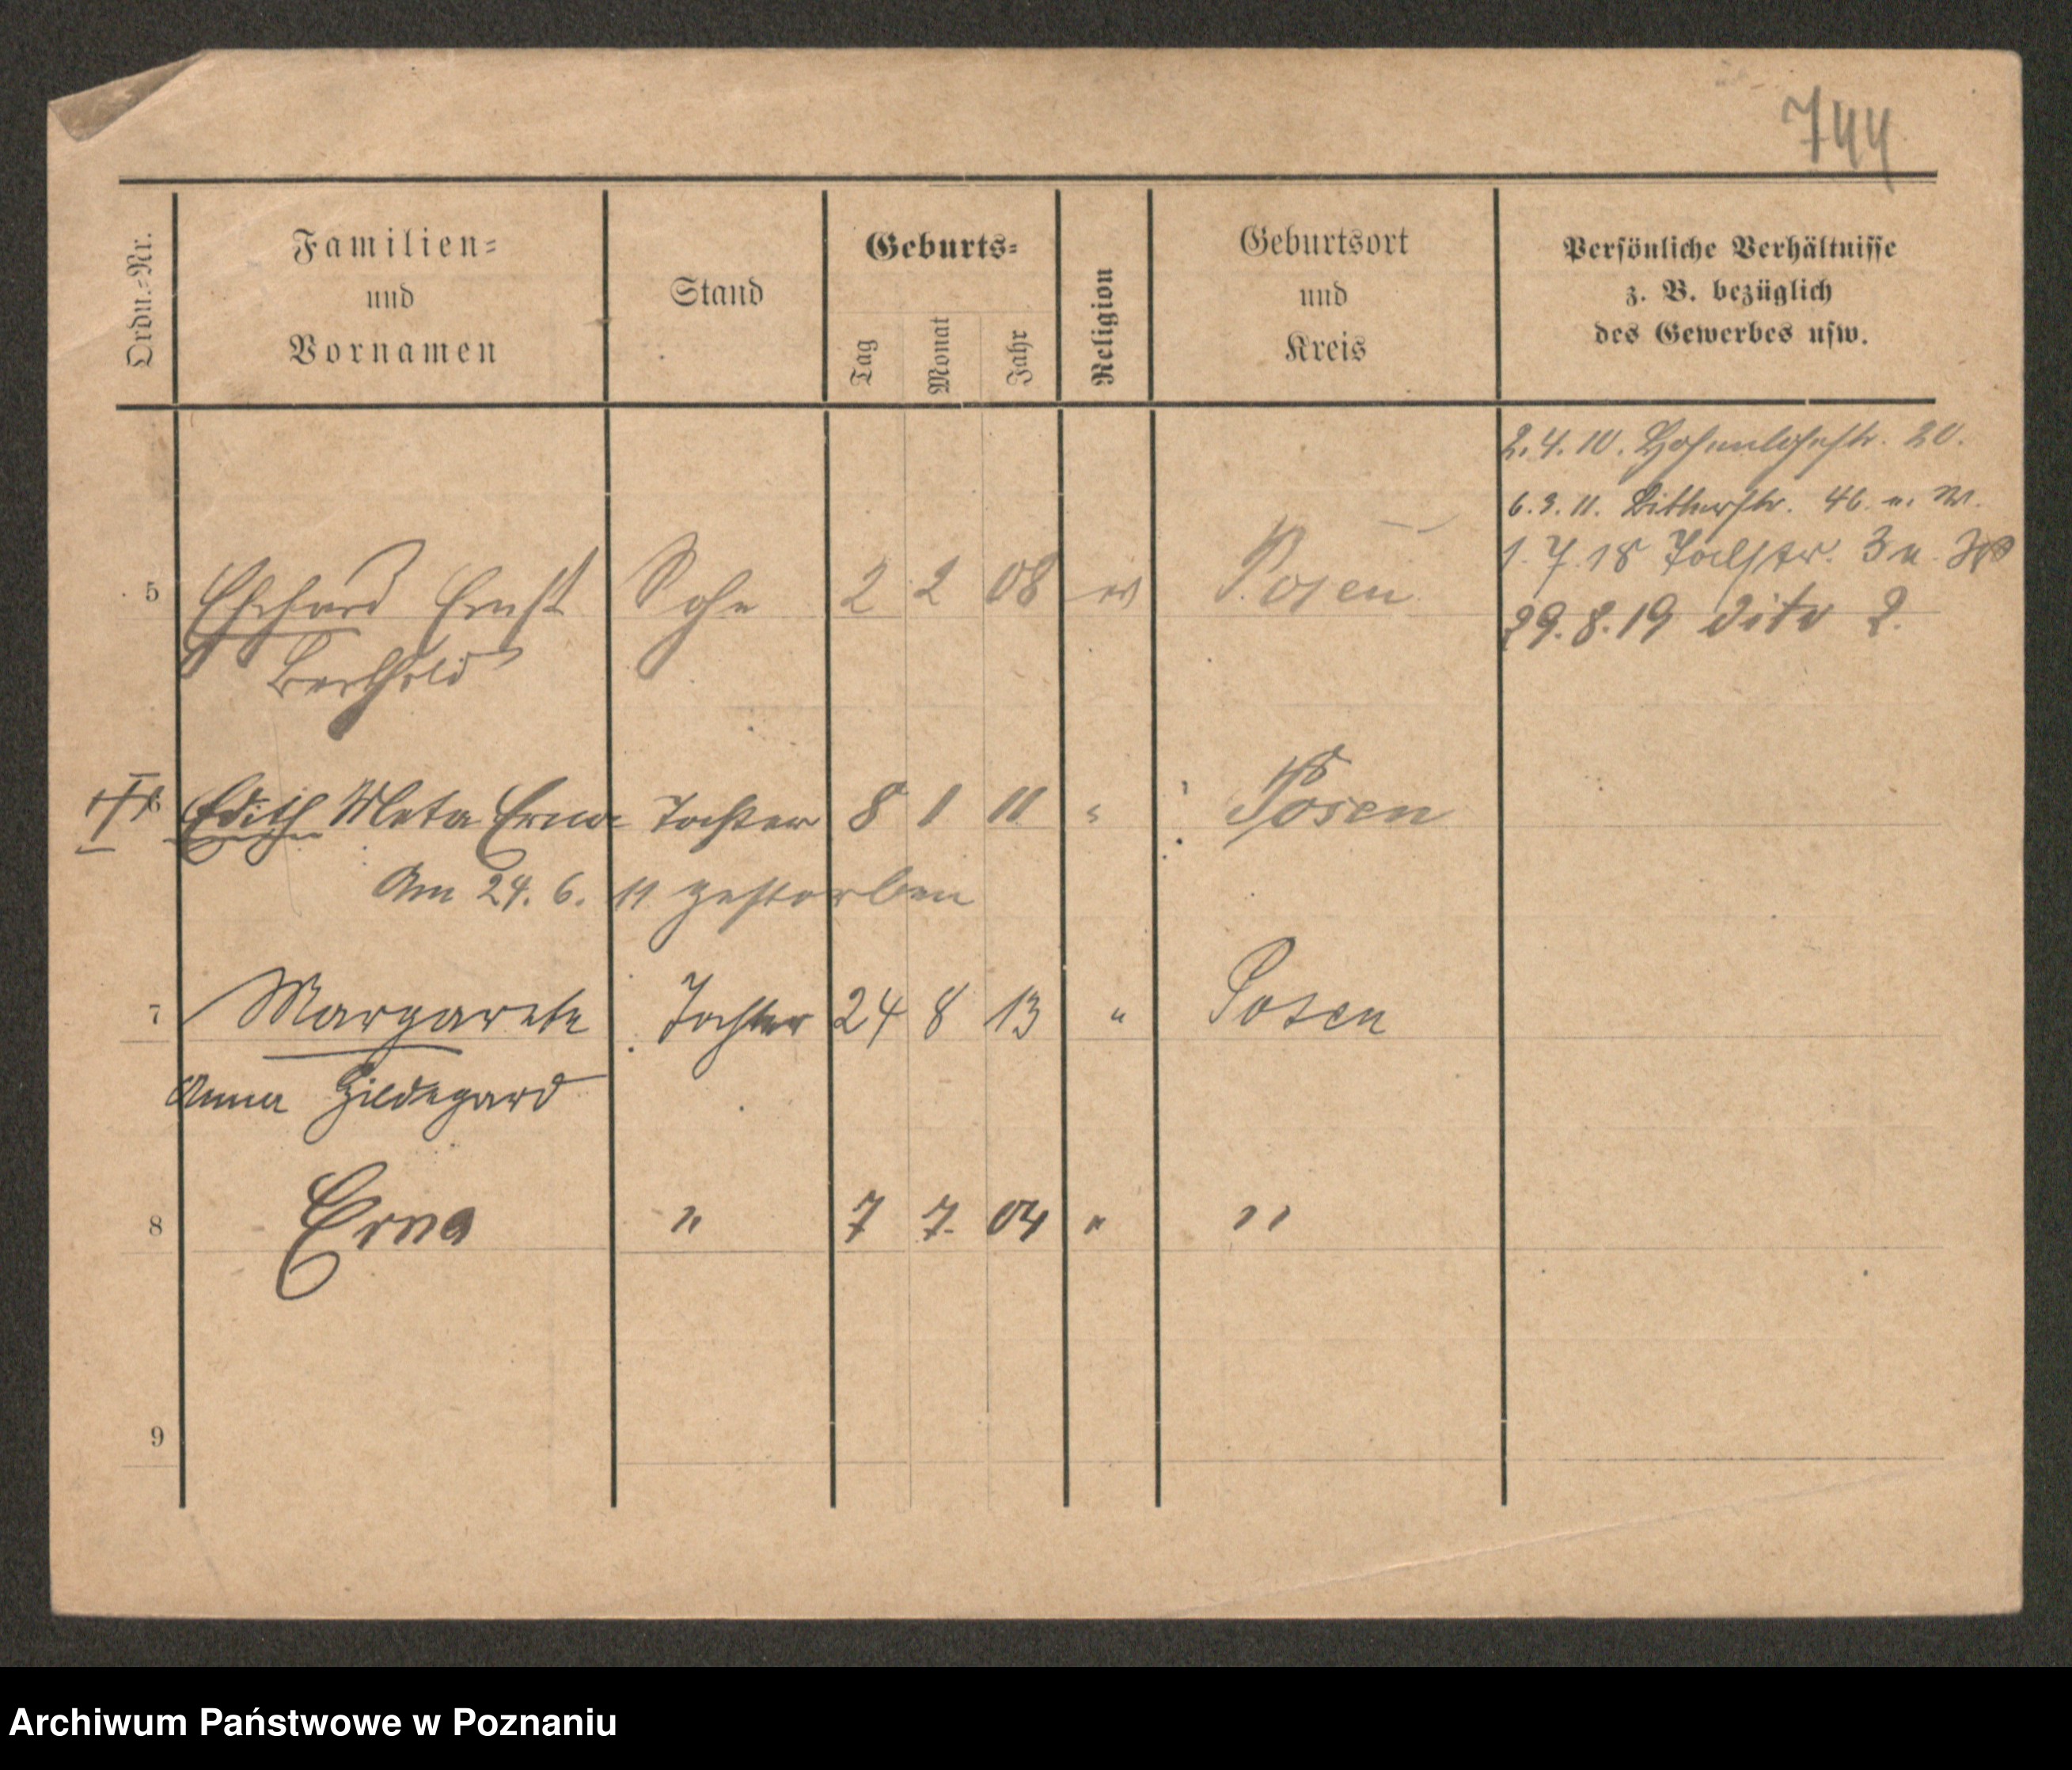 744
Ordn.-Nr.
Familien-
und
Vornamen
Stand
Geburts-
Tag
Monat
Jahr
Religion
Geburtsort
und
Kreis
Persönliche Verhältnisse
z. B. bezüglich
des Gewerbes usw.
2.4.10. Hohenlohestr. 20.
6.3.11. Bitterstr. 46. u. W.
1.7.18 3 u.
29.8.19 dito 2.
5 Ehrhard Ernst Sohn 2 2 08 ev Posen
Berthold
6 Edith Meta Erna Tochter 8 1 11 " Posen
Am 24. 6. 11 gestorben
7 Margarete Tochter 24 8 13 " Posen
Anna Hildegard
8 Erna " 7 7. 04 " "
9
Archiwum Państwowe w Poznaniu